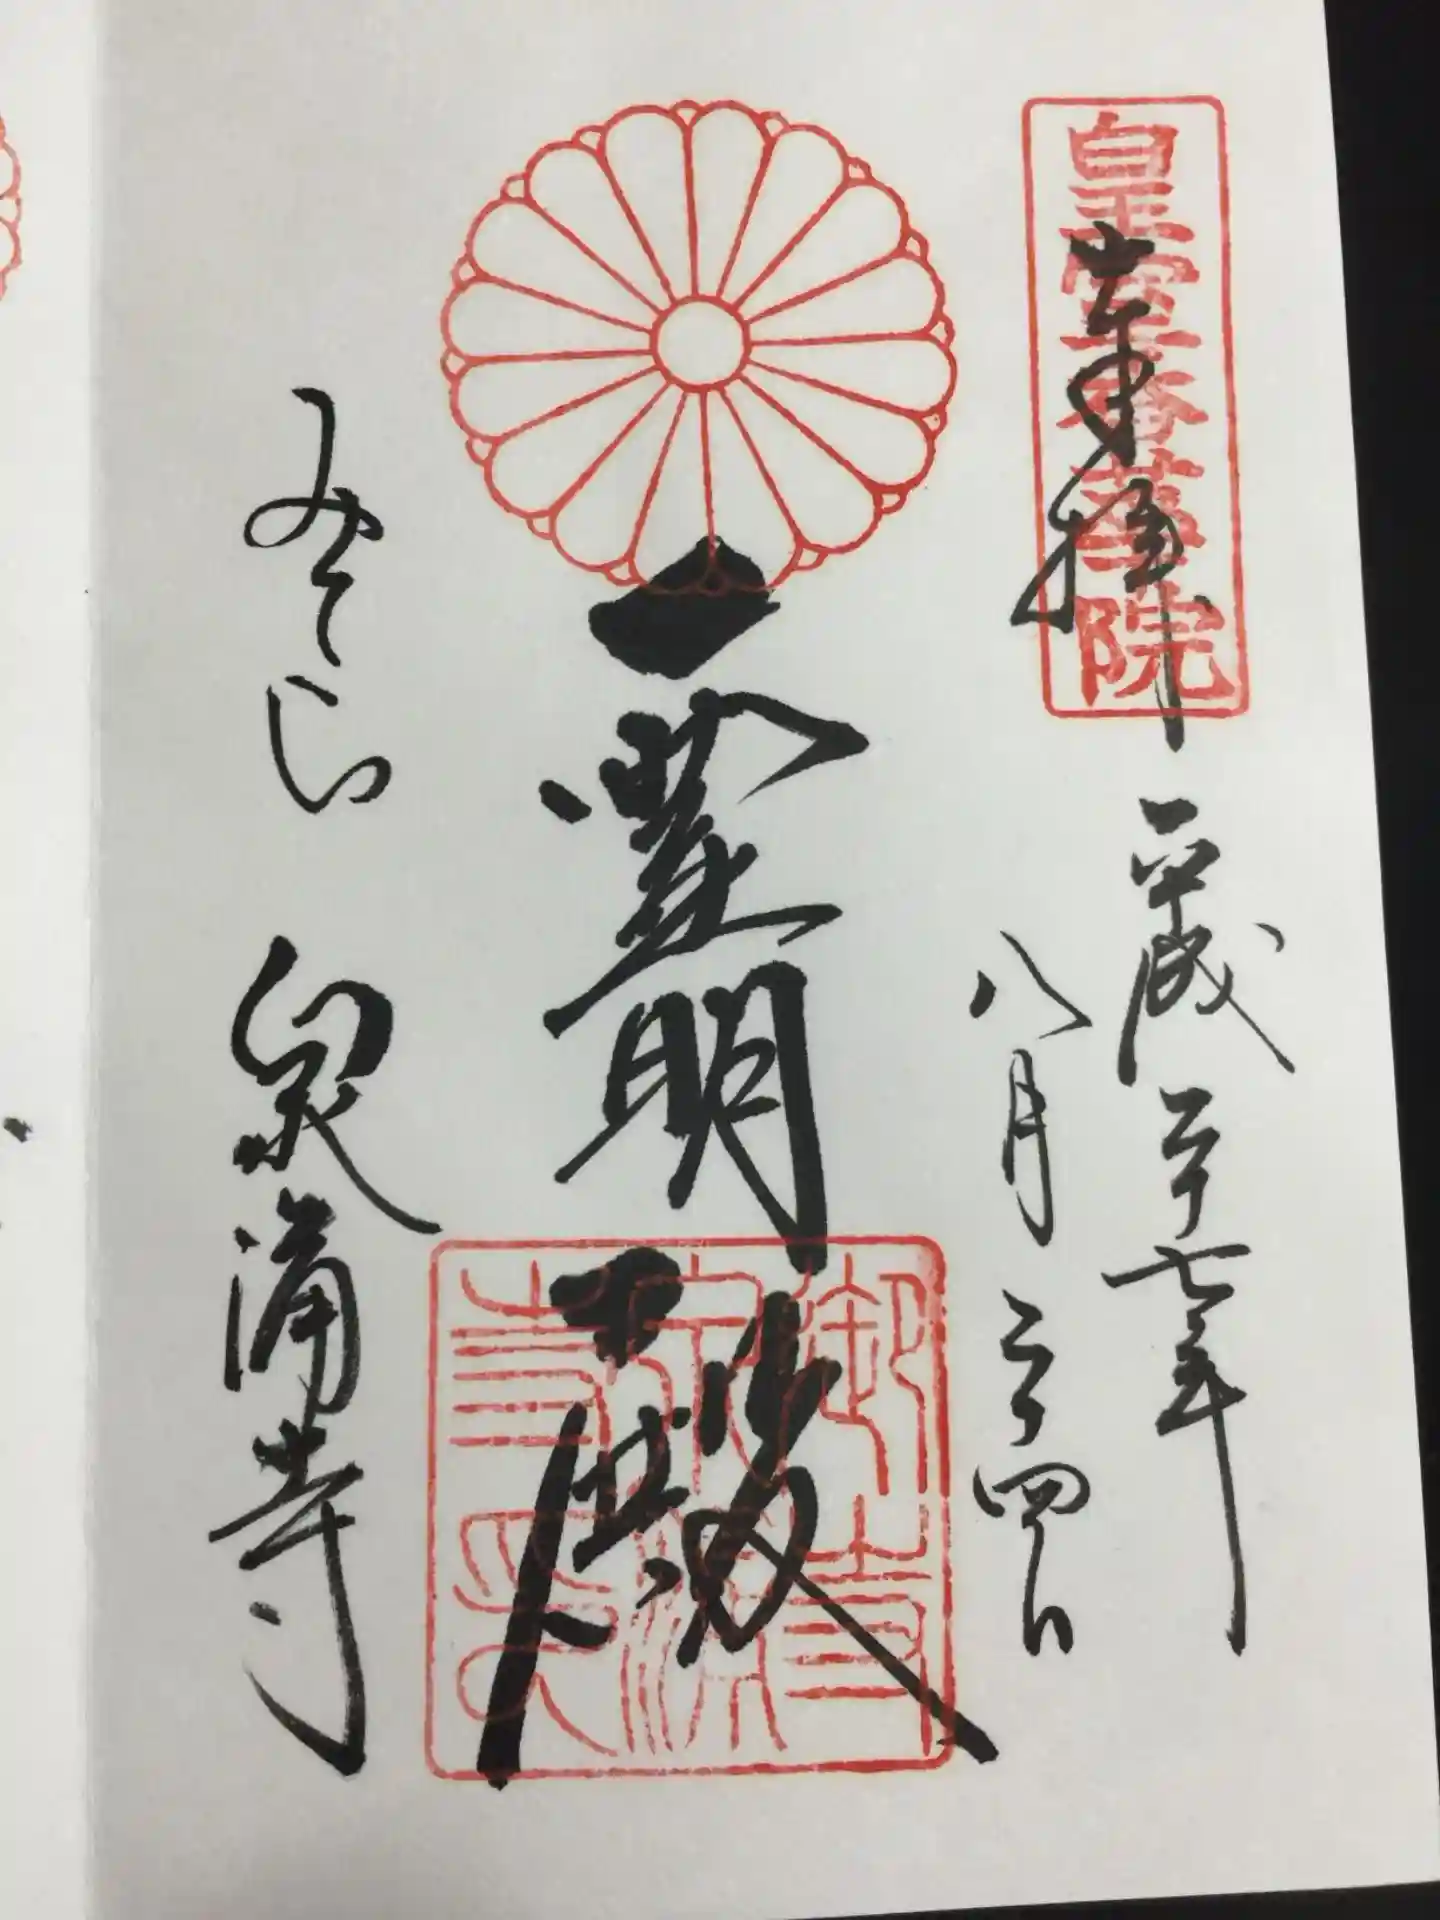 皇室香華院
奉拝
平成二十七年
八月二十四日
霊明殿
みてら 泉涌寺